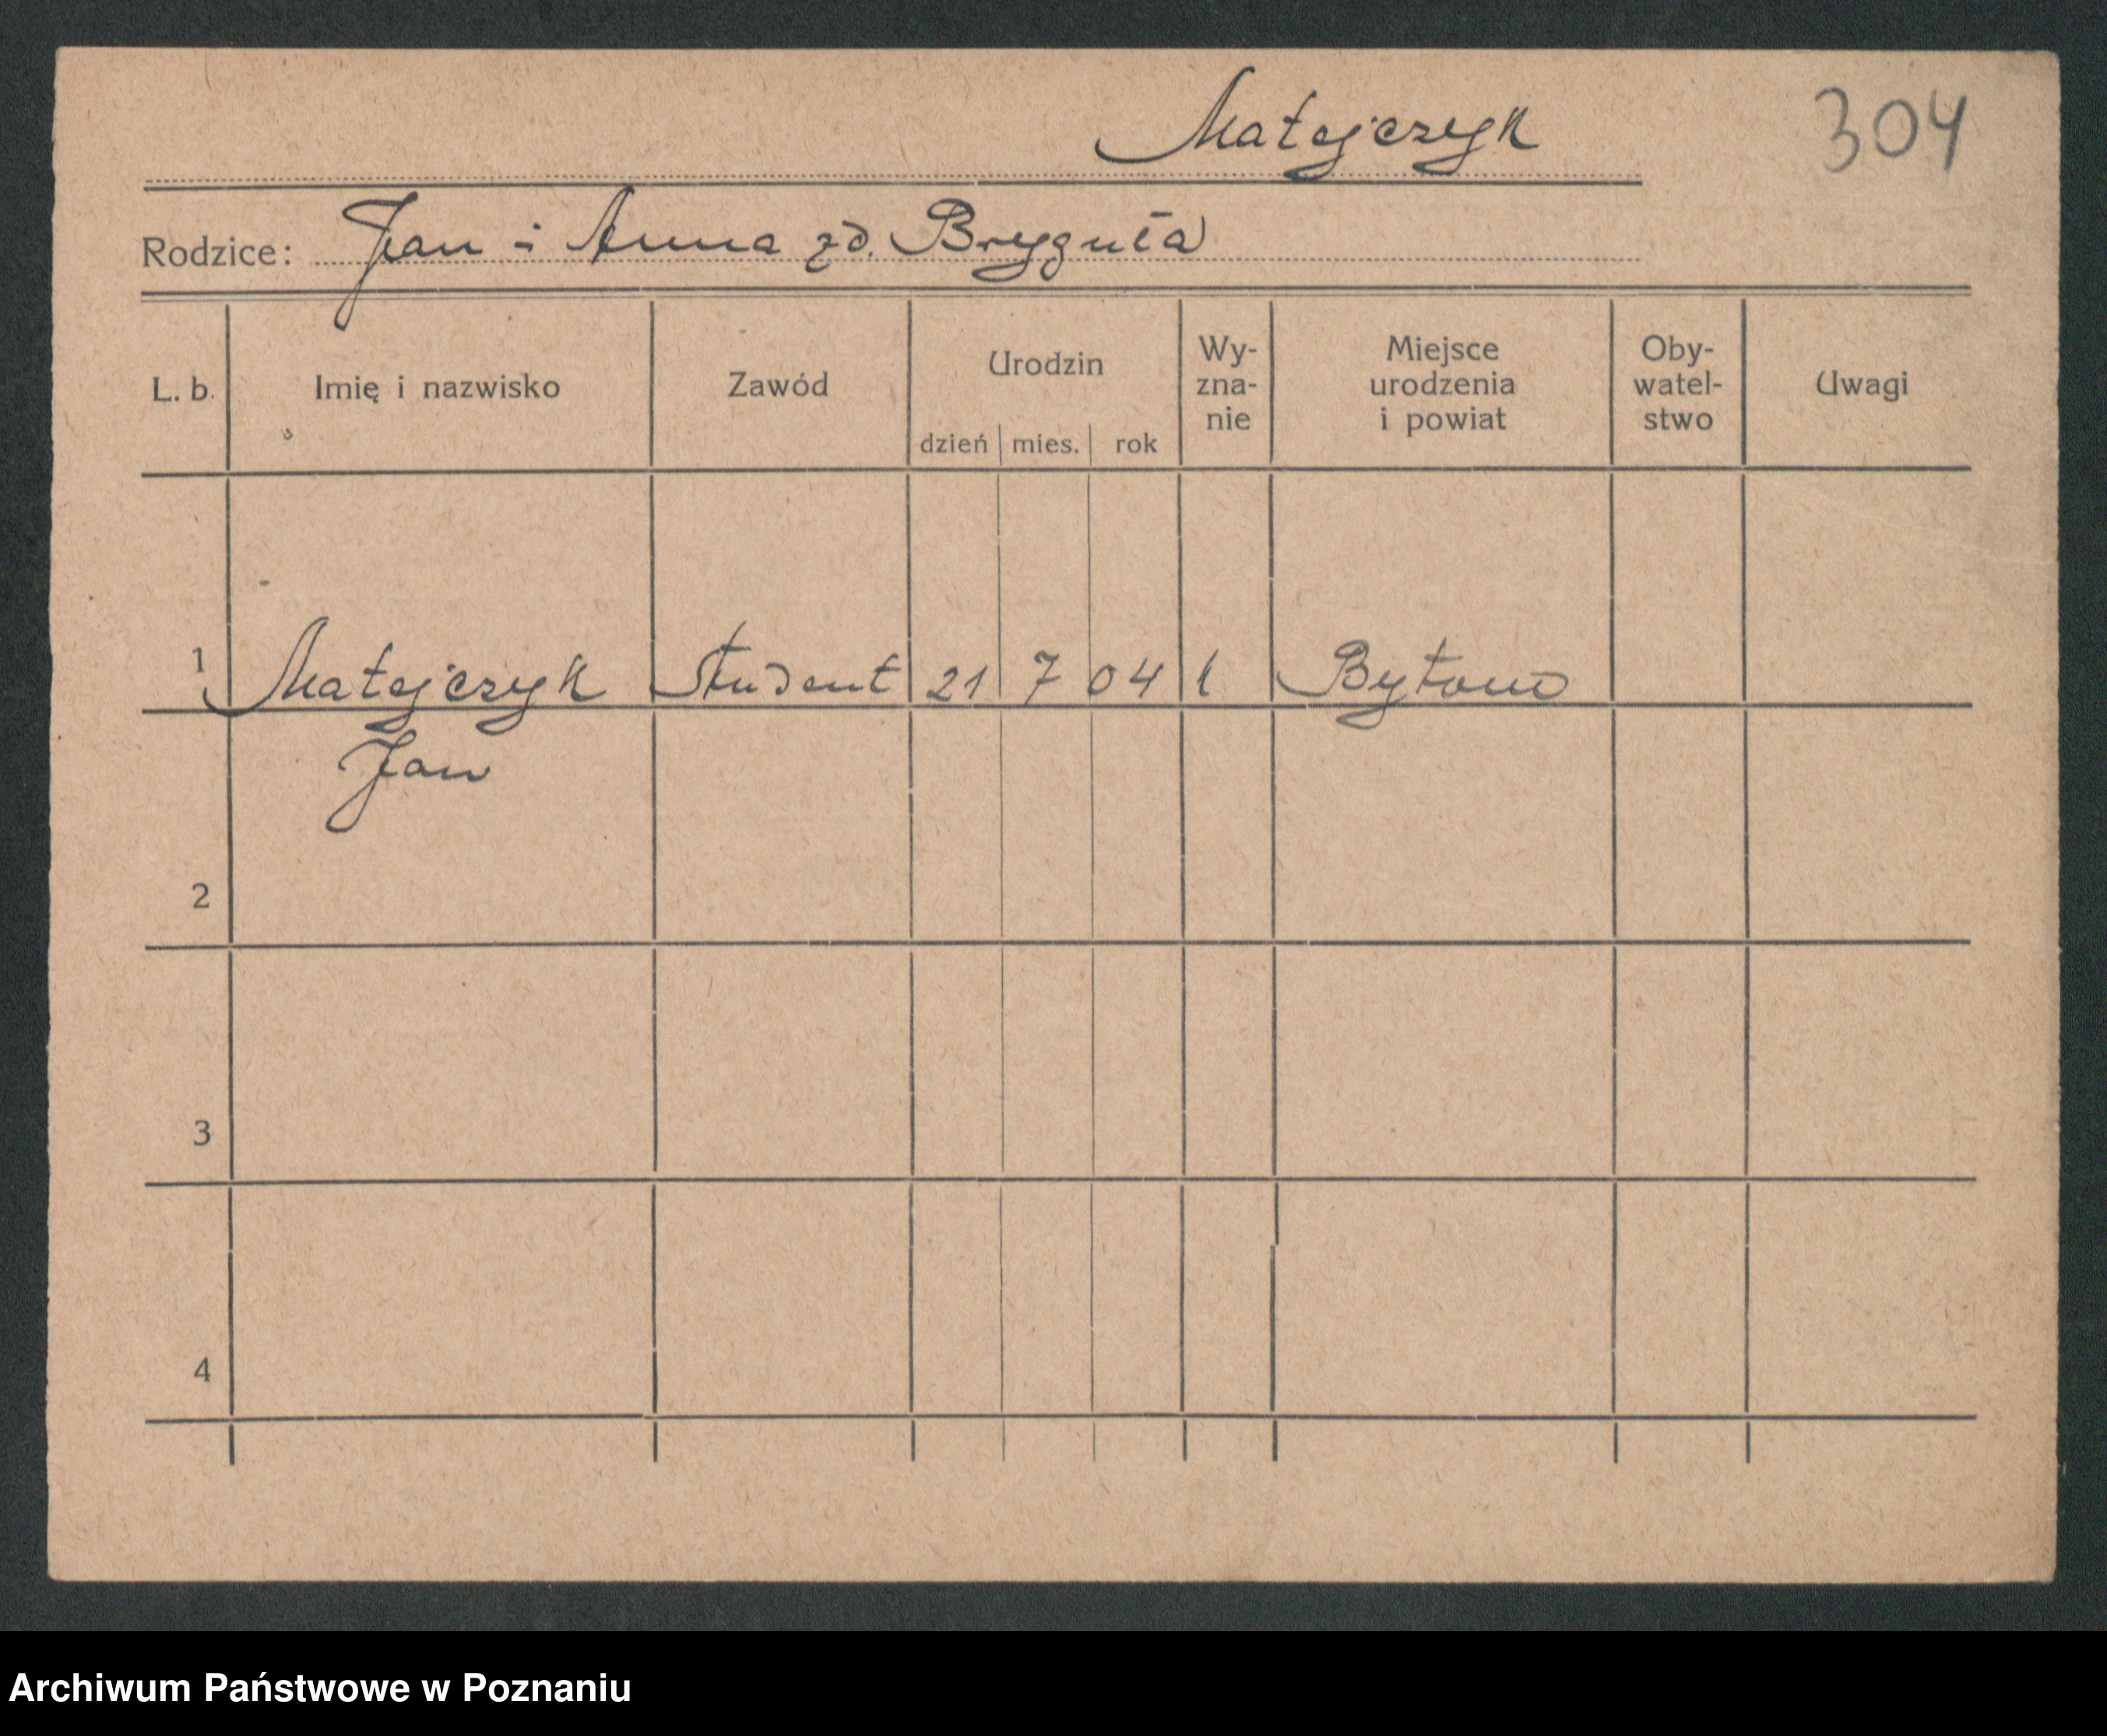 Matejczyk
304
Rodzice: Jan i Anna zd. Bryguła
L. b. Imię i nazwisko Zawód Urodzin dzień mies. rok Wy-zna-nie Miejsce urodzenia i powiat Oby-watel-stwo Uwagi
1 Matejczyk Student 21 7 04 k Bytom
Jan
2
3
4
Archiwum Państwowe w Poznaniu